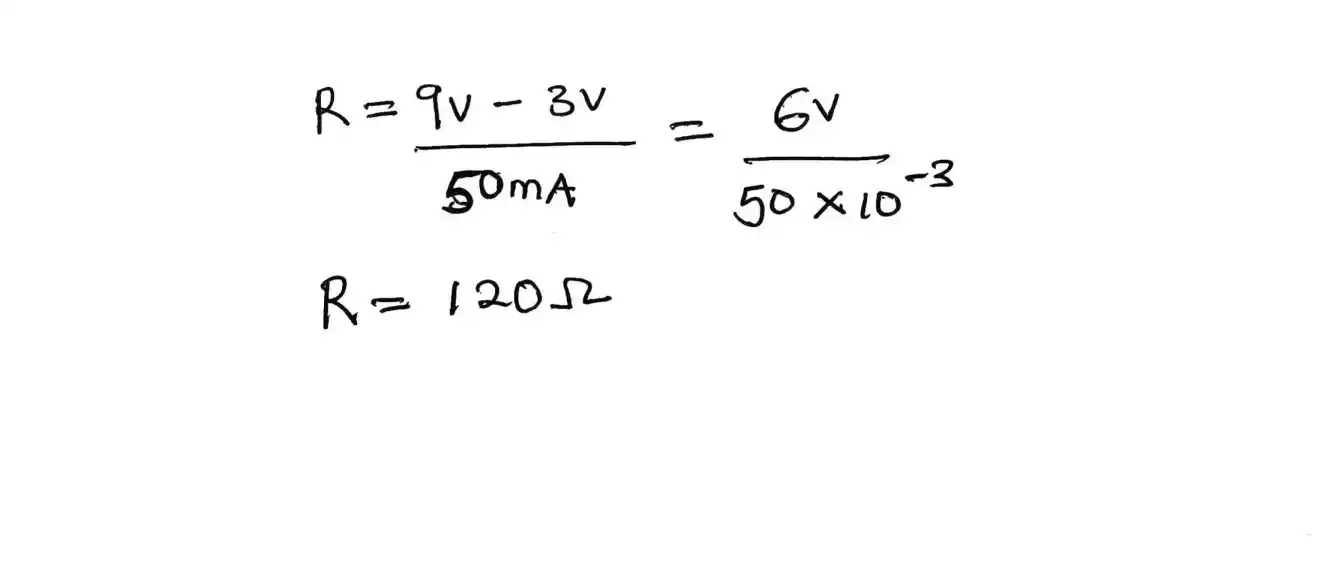 R = 9v - 3v / 50mA = 6v / 50 × 10⁻³
R = 120Ω